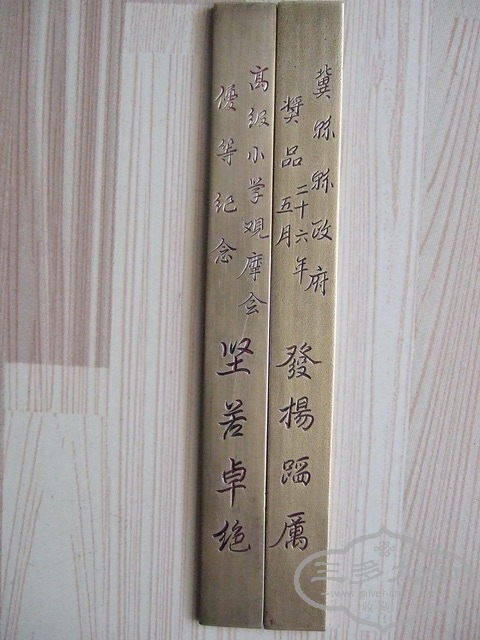 冀縣縣政府
獎品 二十六年
五月
發揚蹈厲
高级小学观摩会
優等纪念
坚苦卓绝